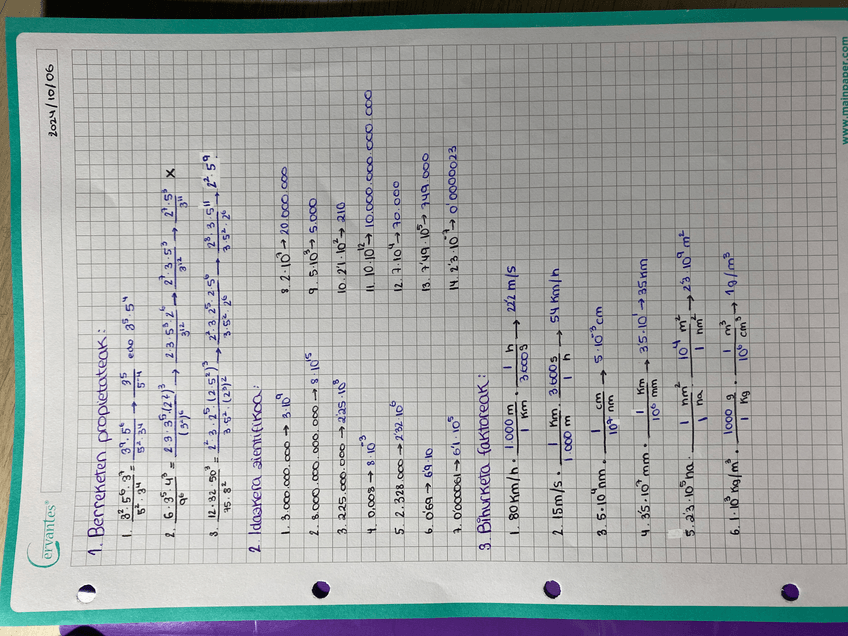 Cervantes®
2024/10/06
1. Berreketen propietateak:
1. 3²·5⁶·3⁷ / 5²·3⁴ = 3⁹·5⁶ / 5²·3⁴ → 3⁵ / 5⁻⁴ edo 3⁵·5⁴
2. 6·3⁵·4³ / 9⁶ = 2·3·3⁵·(2²)³ / (3²)⁶ → 2·3·5³·2⁶ / 3¹² → 2⁷·3·5³ / 3¹² → 2⁷·5³ / 3¹¹ X
3. 12·32·50³ / 75·8² = 2²·3·2⁵·(2·5²)³ / 3·5²·(2³)² → 2²·3·2⁵·2·5⁶ / 3·5²·2⁶ → 2⁸·3·5¹¹ / 3·5²·2⁶ → 2²·5⁹
2. Idazkera zientifikoa:
1. 3.000.000.000 → 3·10⁹
2. 8.000.000.000.000.000 → 8·10¹⁵
3. 225.000.000 → 2'25·10⁸
4. 0,003 → 8·10⁻³
5. 2.328.000 → 2'32·10⁶
6. 0'69 → 6'9·10
7. 0'000061 → 6'1·10⁵
8. 2·10⁷ → 20.000.000
9. 5·10³ → 5.000
10. 2'1·10² → 210
11. 10·10¹² → 10.000.000.000.000
12. 7·10⁴ → 70.000
13. 7'49·10⁵ → 749.000
14. 2'3·10⁻⁷ → 0'0000023
3. Bihurketa faktoreak:
1. 80 Km/h · 1.000 m / 1 Km · 1 h / 3600 s → 22'2 m/s
2. 15 m/s · 1 Km / 1.000 m · 3600 s / 1 h → 54 Km/h
3. 5·10⁴ nm · 1 cm / 10⁷ nm → 5·10⁻³ cm
4. 3'5·10⁷ mm · 1 Km / 10⁶ mm → 3'5·10¹ → 35 Km
5. 2'3·10⁵ ha · 1 hm² / 1 ha · 10⁴ m² / 1 hm² → 2'3·10⁹ m²
6. 1·10³ Kg/m³ · 1000 g / 1 Kg · 1 m³ / 10⁶ cm³ → 1 g/m³
www.mainpaper.com